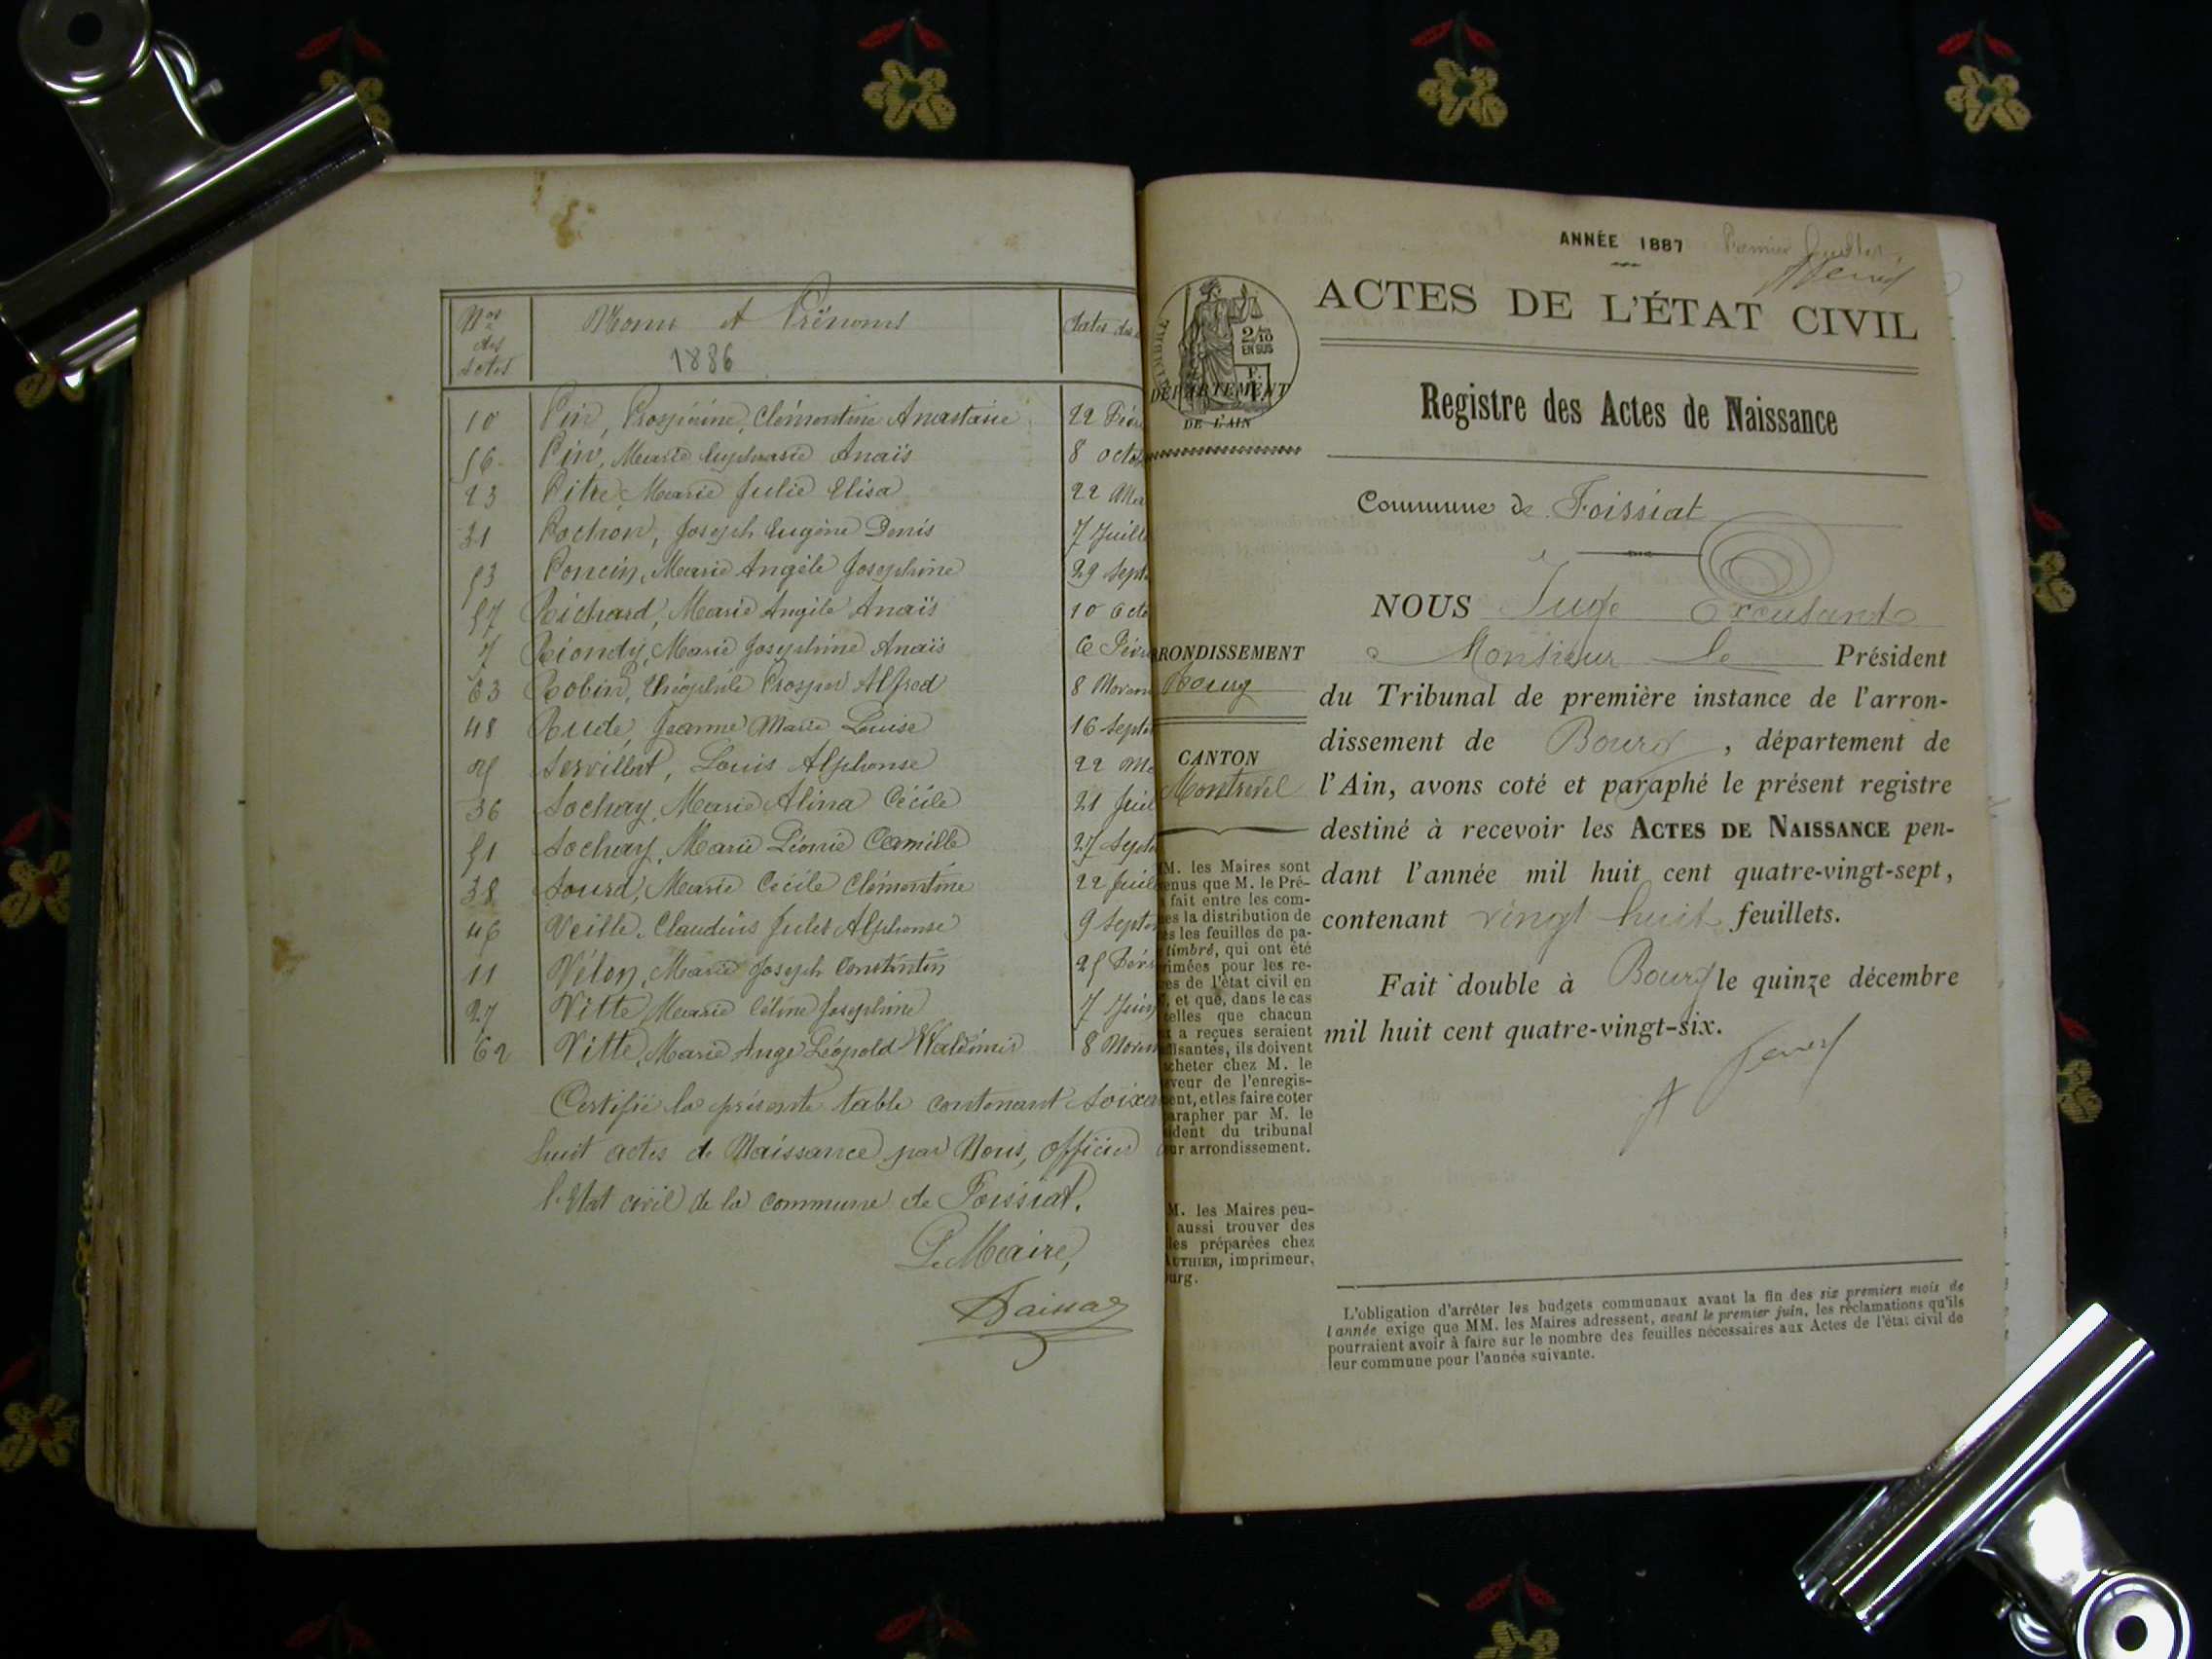 Nos des actes
Noms et Prénoms
1886
Dates des
10 Pin, Prospérine, Clémentine Anastasie 22 Févr
56 Pin, Marie Euphrasie Anaïs 8 octob
23 Pitre Marie Julie Elisa 22 Ma
31 Pochon, Joseph Eugène Denis 7 Juill
53 Poncin, Marie Angèle Joséphine 29 Sept
57 Richard, Marie Angèle Anaïs 10 Octo
7 Riondy, Marie Joséphine Anaïs 6 Févr
63 Robin, Théophile Prosper Alfred 8 Novem
48 Rude, Jeanne Marie Louise 16 Septe
Servillat, Louis Alphonse 22 Ma
36 Sochay, Marie Alina Cécile 21 Juil
51 Sochay, Marie Léonie Camille 27 Septe
38 Sourd, Marie Cécile Clémentine 22 Juil
46 Veille, Claudius Jules Alphonse 9 Septe
11 Vélon, Marie Joseph Constantin 25 Févr
27 Vitte Marie Céline Joséphine 7 Juin
62 Vitte, Marie Ange Léopold Waldimir 8 Novem
Certifié la présente table contenant soixa
huit actes de Naissance par Nous, officier
l'Etat civil de la commune de Foissiat.
Le Maire,
ANNÉE 1887
Premier feuillet
ACTES DE L'ÉTAT CIVIL
TIMBRE
2/10
EN SUS
DÉPARTEMENT
DE L'AIN
Registre des Actes de Naissance
Commune de Foissiat
RONDISSEMENT
Bourg
CANTON
Montrevel
M. les Maires sont
enus que M. le Pré-
fait entre les com-
es la distribution de
es les feuilles de pa-
timbré, qui ont été
rimées pour les re-
es de l'état civil en
, et que, dans le cas
elles que chacun
a reçues seraient
isantes, ils doivent
cheter chez M. le
eveur de l'enregis-
ent, et les faire coter
arapher par M. le
ident du tribunal
ur arrondissement.
M. les Maires peu-
aussi trouver des
les préparées chez
AUTHIER, imprimeur,
urg.
NOUS Juge
Monsieur le Président
du Tribunal de première instance de l'arron-
dissement de Bourg, département de
l'Ain, avons coté et paraphé le présent registre
destiné à recevoir les ACTES DE NAISSANCE pen-
dant l'année mil huit cent quatre-vingt-sept,
contenant vingt huit feuillets.
Fait double à Bourg le quinze décembre
mil huit cent quatre-vingt-six.
L'obligation d'arrêter les budgets communaux avant la fin des six premiers mois de
l'année exige que MM. les Maires adressent, avant le premier juin, les réclamations qu'ils
pourraient avoir à faire sur le nombre des feuilles nécessaires aux Actes de l'état civil de
leur commune pour l'année suivante.